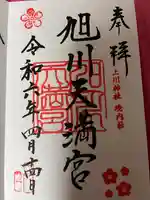 奉拝
上川神社 境内社
旭川天満宮
令和六年四月十四日